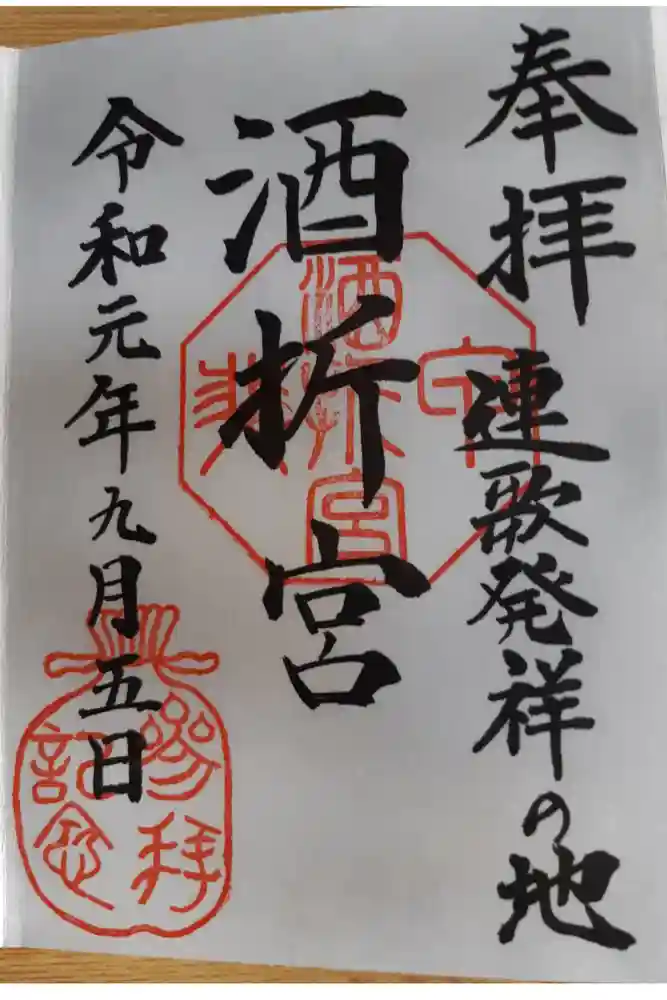 奉拝 連歌発祥の地
酒折宮
令和元年九月五日
酒折宮
参拝
記念